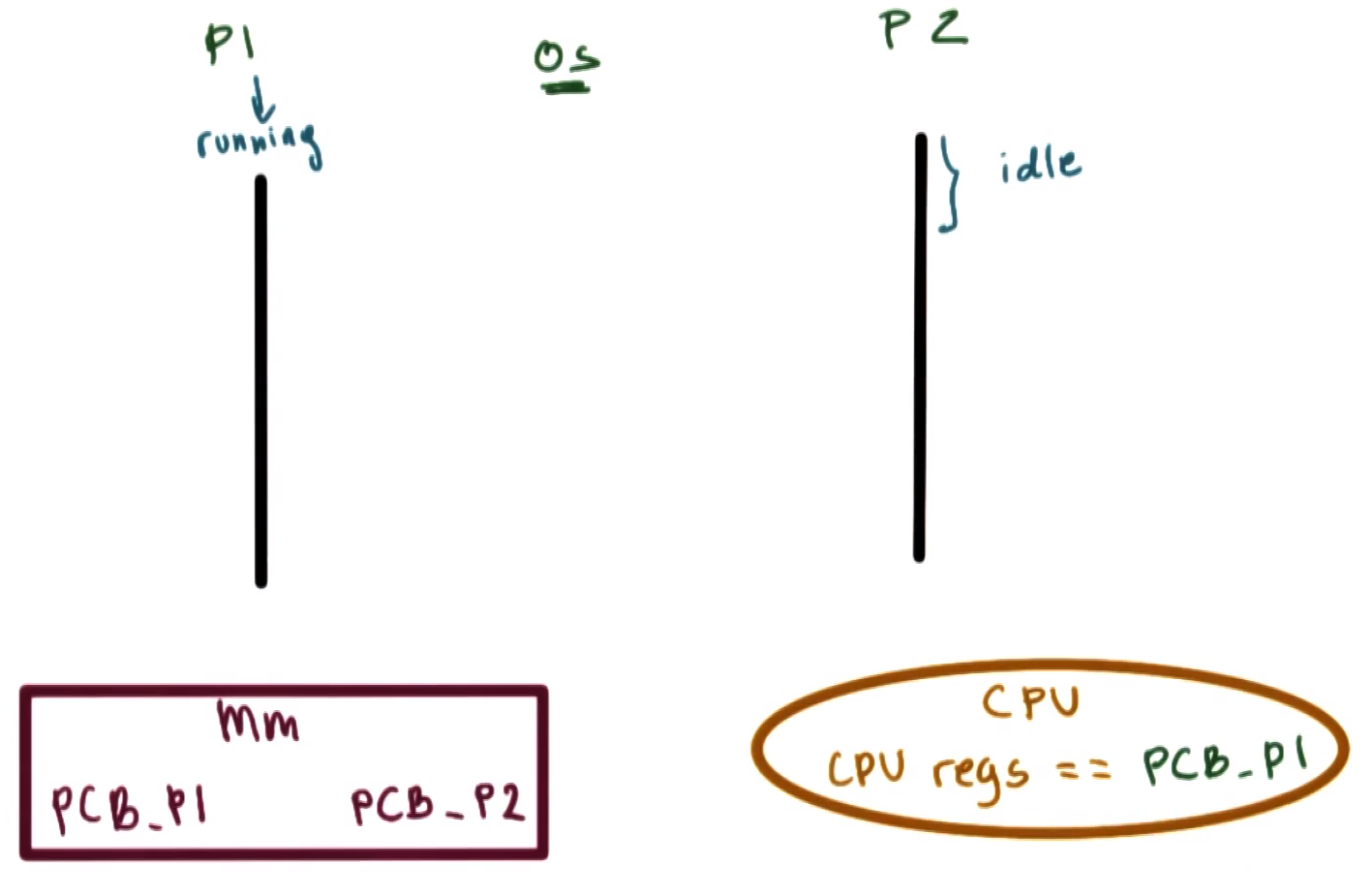 P1
OS
P2
running
idle
mm
PCB_P1
PCB_P2
CPU
CPU regs == PCB_P1